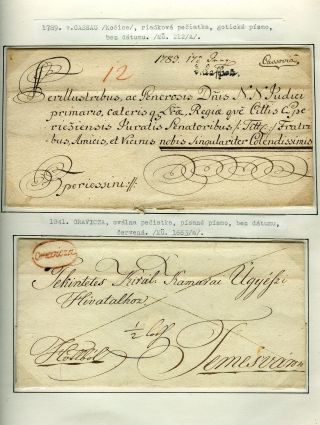 1789. v.CASSAU /Košice/, riedková pečiatka, gotické písmo,
bez dátumu, /MÜ. 212/A/.
1789. 17
Cassovia
v. Caschau
12
Perillustribus, ac Generosis Dñis N. N. Judici
primario, cæteris q̃ Regiæ q̃ Cittis Epe
riesiensis Juratis Senatoribus
bus, Amicis, et Vicinis nobis Singulariter Colendissimis
Eperiessini
1841. ORAVICZA, oválna pečiatka, písané písmo, bez dátumu,
červená. /MÜ. 1663/A/.
Oravicza
Tekintetes Királ. Kamarai Ügyészi
Hivatalhoz
1/2
Temesváron